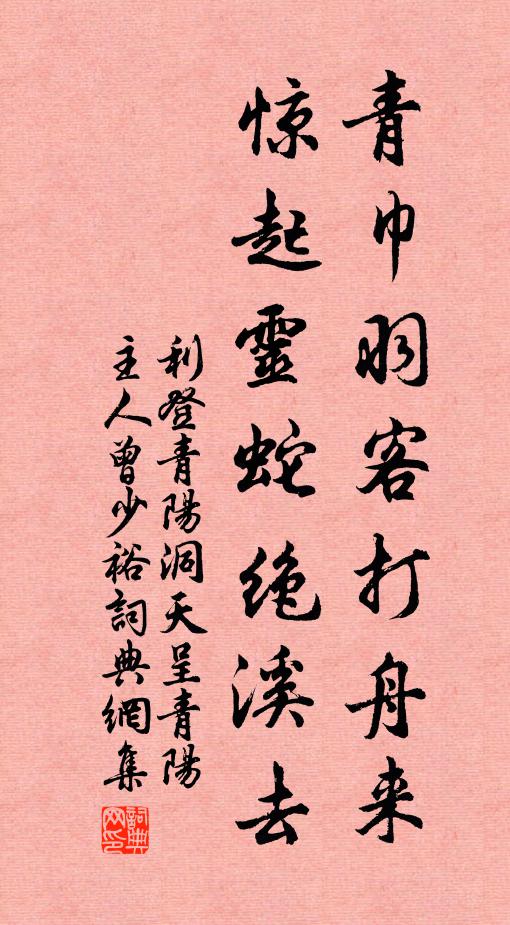 青巾羽客打舟来
惊起靈蛇绝溪去
利登青陽洞天呈青陽
主人曾少裕詞典網集
詞典
网印